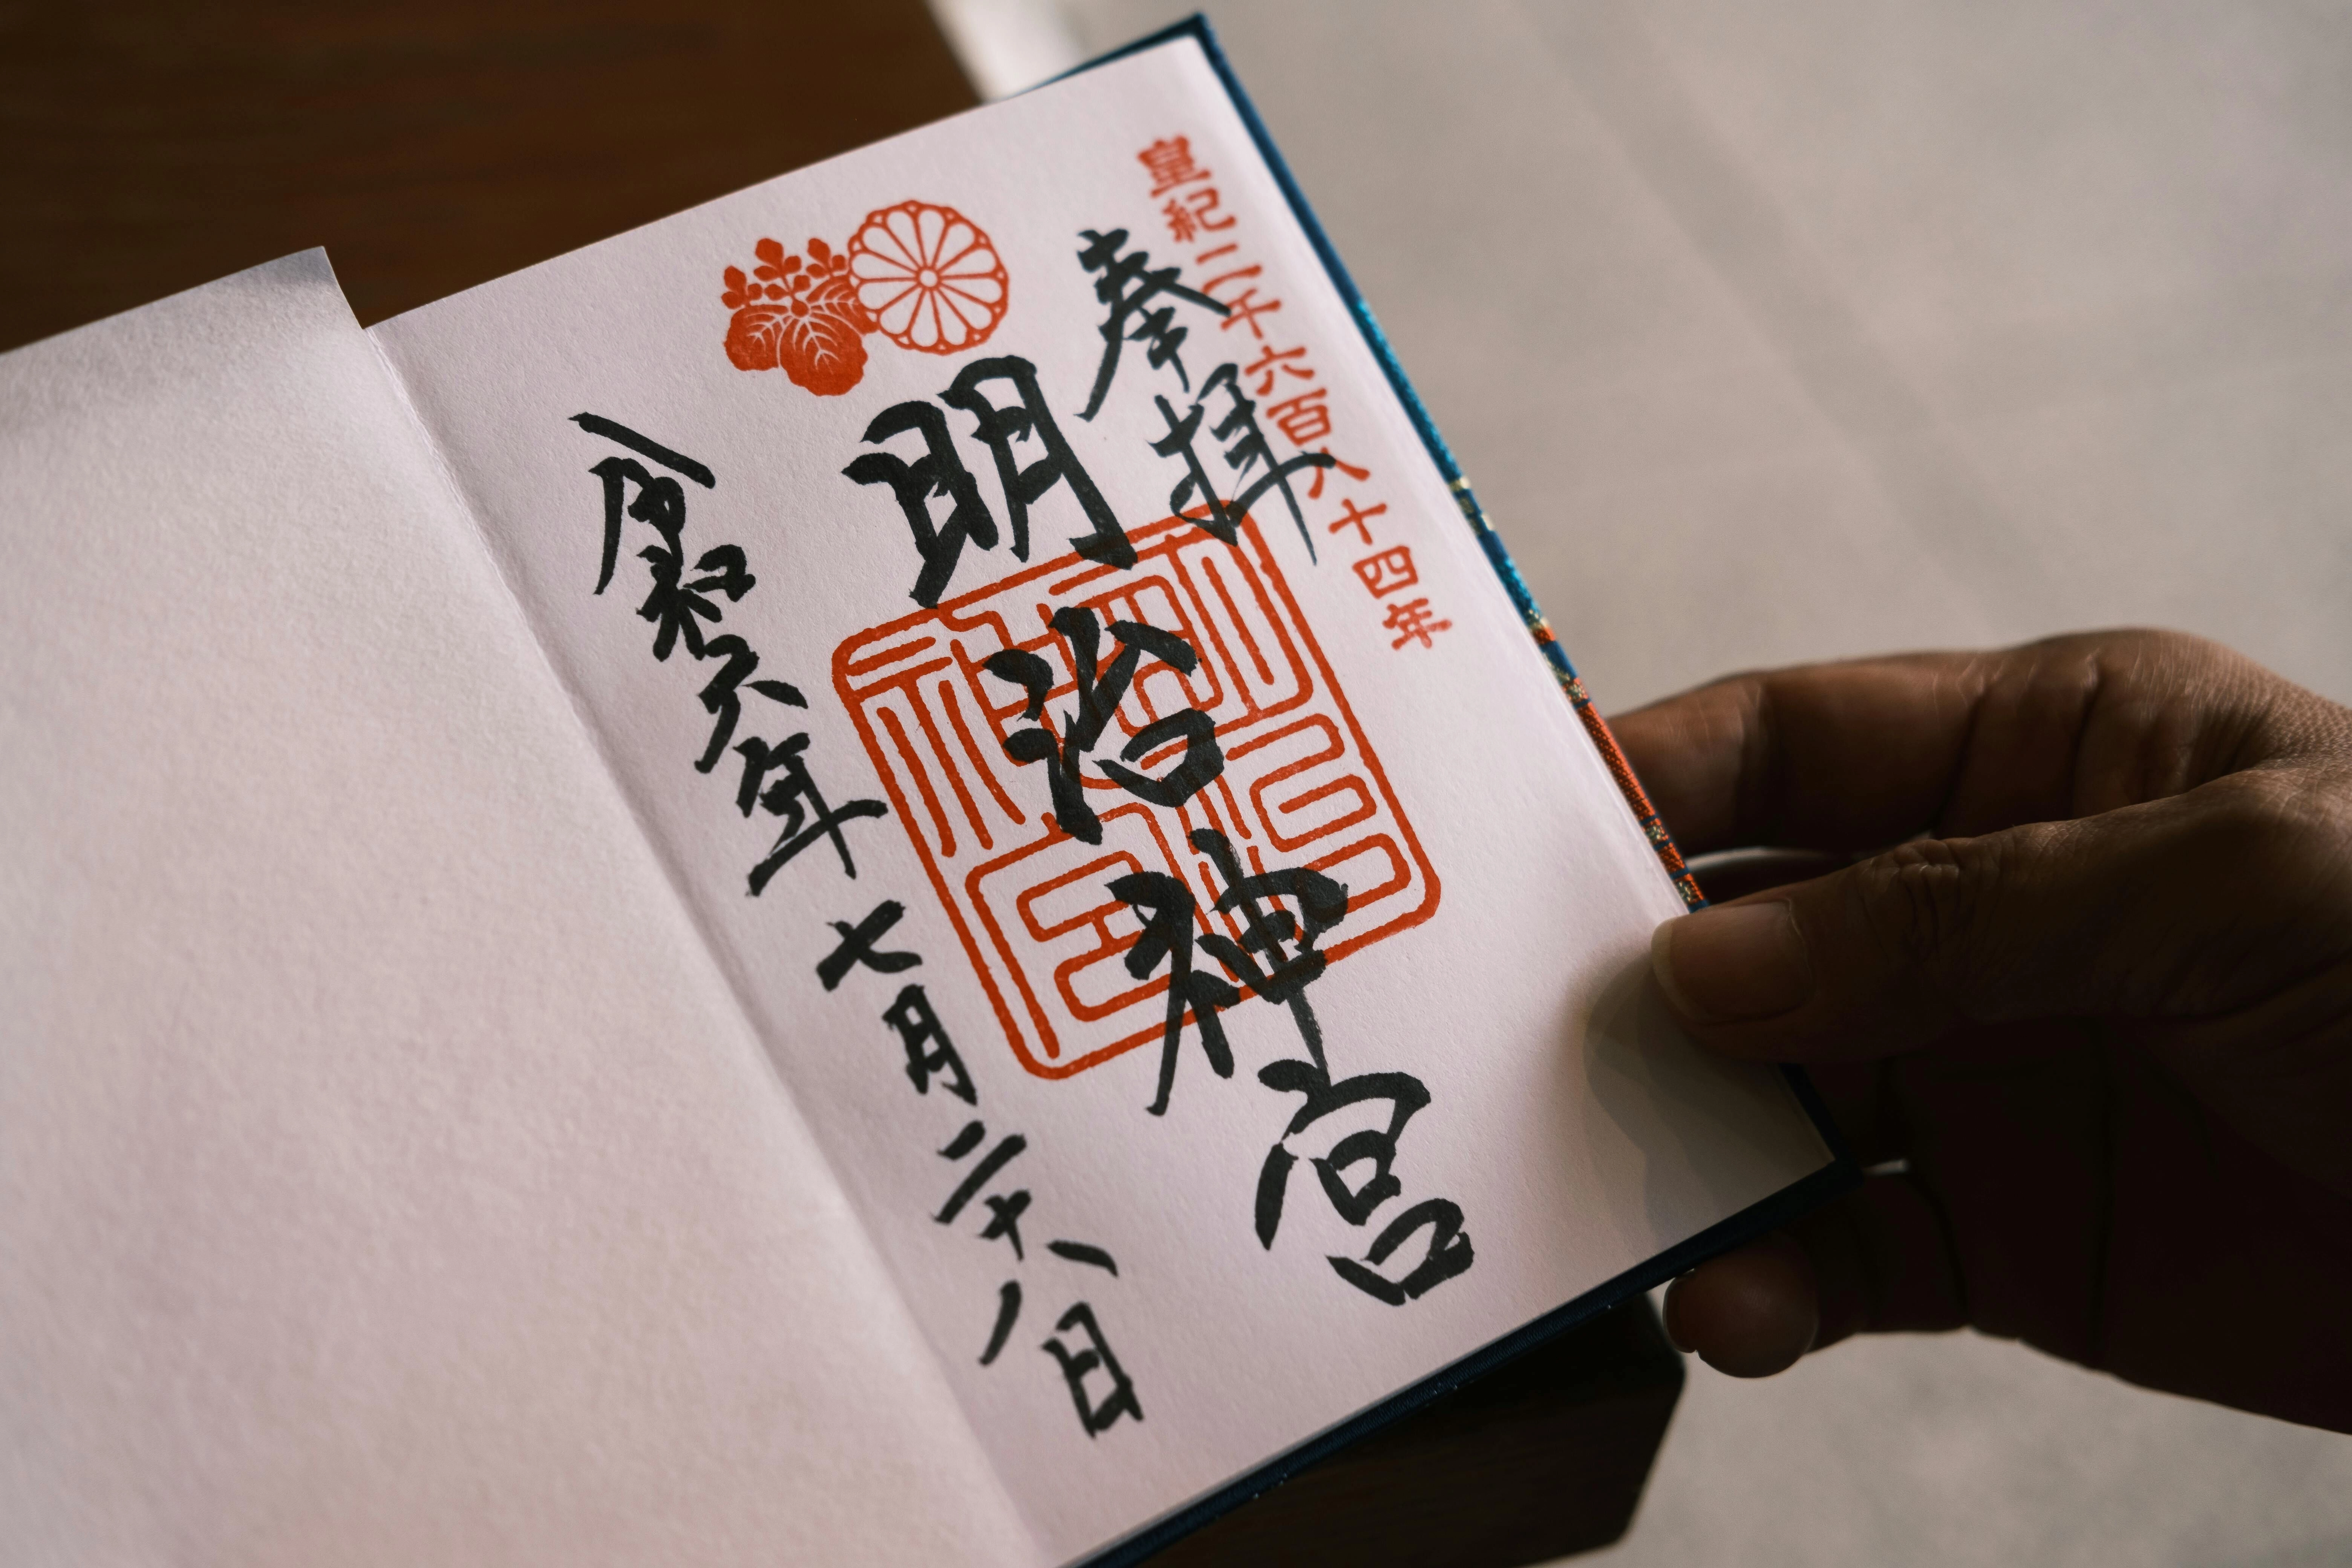 皇紀二千六百八十四年
奉拝
明治神宮
令和六年七月二十八日
明治神宮